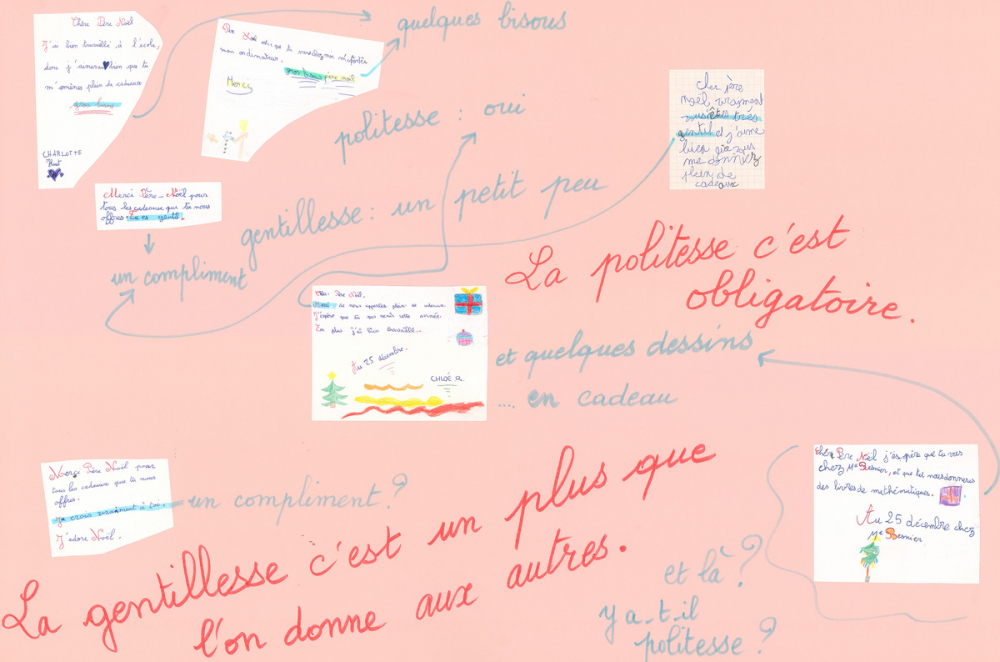 Chère Père Noël
J'ai bien travaillé à l'école,
donc j'aimerai bien que tu
m'amènes plein de cadeaux
gros bisous
CHARLOTTE
Huet
quelques bisous
mon ordenateur, gros bisous père noël
Merci
politesse : oui
cher père
noël vraiment
vous êtes très
gentil et j'aime
bien que vous
me donniez
plein de
cadeaux
Merci Père-Noël pour
tous les cadeaux que tu nous
offres. Tu es gentil.
gentillesse : un petit peu
un compliment
La politesse c'est
obligatoire.
Cher Père Noël,
Merci de nous apporter plein de cadeaux.
J'espère que tu vas venir cette année.
En plus j'ai bien travaillé...
Au 25 décembre.
CHLOÉ R.
et quelques dessins
.... en cadeau
Merci Père Noël pour
tous les cadeaux que tu nous
offres.
Je crois vraiment à toi.
J'adore Noël.
un compliment ?
Cher Père Noël j'espère que tu vas
chez Me Besnier, et que tu nous donneras
des livres de mathématiques.
Au 25 décembre chez
Me Besnier
La gentillesse c'est un plus que
l'on donne aux autres.
et là ?
y a-t-il
politesse ?